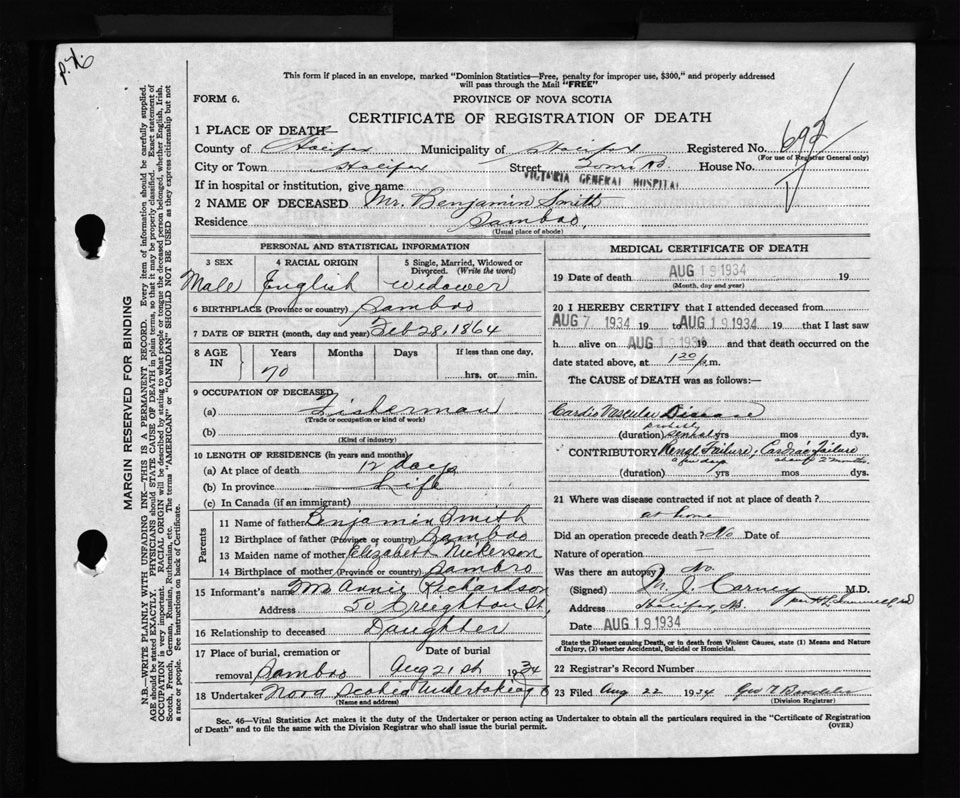 This form if placed in an envelope, marked "Dominion Statistics—Free, penalty for improper use, $300," and properly addressed
will pass through the Mail "FREE"
FORM 6.
PROVINCE OF NOVA SCOTIA
CERTIFICATE OF REGISTRATION OF DEATH
1 PLACE OF DEATH—
County of Halifax Municipality of Halifax Registered No. 692
(For use of Registrar General only)
City or Town Halifax Street House No.
If in hospital or institution, give name VICTORIA GENERAL HOSPITAL
2 NAME OF DECEASED Mr. Benjamin Smith
Residence Sambro,
(Usual place of abode)
PERSONAL AND STATISTICAL INFORMATION
3 SEX 4 RACIAL ORIGIN 5 Single, Married, Widowed or Divorced. (Write the word)
Male English Widower
6 BIRTHPLACE (Province or country) Sambro
7 DATE OF BIRTH (month, day and year) Feb 28, 1864
8 AGE IN Years Months Days If less than one day.
70 hrs. or min.
9 OCCUPATION OF DECEASED
(a) Fisherman
(Trade or occupation or kind of work)
(b)
(Kind of industry)
10 LENGTH OF RESIDENCE (in years and months)
(a) At place of death 12 days
(b) In province Life
(c) In Canada (if an immigrant)
Parents
11 Name of father Benjamin Smith
12 Birthplace of father (Province or country) Sambro
13 Maiden name of mother Elizabeth Nickerson
14 Birthplace of mother (Province or country) Sambro
15 Informant's name Annie Richardson
Address 50 Creighton St,
16 Relationship to deceased Daughter
17 Place of burial, cremation or removal Date of burial
Sambro Aug 21st 1934
18 Undertaker Nova Scotia Undertaking
(Name and address)
MEDICAL CERTIFICATE OF DEATH
19 Date of death AUG 19 1934 19
(Month, day and year)
20 I HEREBY CERTIFY that I attended deceased from
AUG 7 1934 19 to AUG 19 1934 19 that I last saw
h alive on AUG 19 1934 19 and that death occurred on the
date stated above, at 1 20 p.m.
The CAUSE of DEATH was as follows:—
Cardio Vascular Disease
(duration) several yrs mos dys.
CONTRIBUTORY Renal Failure, Cardiac Failure
(duration) a few days yrs mos dys.
21 Where was disease contracted if not at place of death?
at home
Did an operation precede death? No Date of
Nature of operation —
Was there an autopsy? No.
(Signed) M. J. Carney M.D.
Address Halifax, NS.
Date AUG 19 1934
State the Disease causing Death, or in death from Violent Causes, state (1) Means and Nature
of Injury, (2) whether Accidental, Suicidal or Homicidal.
22 Registrar's Record Number
23 Filed Aug 22 1934
(Division Registrar)
Sec. 46—Vital Statistics Act makes it the duty of the Undertaker or person acting as Undertaker to obtain all the particulars required in the "Certificate of Registration
of Death" and to file the same with the Division Registrar who shall issue the burial permit.
(OVER)
MARGIN RESERVED FOR BINDING
N.B.—WRITE PLAINLY WITH UNFADING INK—THIS IS A PERMANENT RECORD. Every item of information should be carefully supplied.
AGE should be stated EXACTLY. PHYSICIANS should STATE CAUSE OF DEATH in plain terms, so that it may be properly classified. Exact statement of
OCCUPATION is very important. RACIAL ORIGIN will be described by stating to what people or tongue the deceased person belonged, whether English, Irish,
Scotch, French, German, Russian, Ruthenian, etc. The terms "AMERICAN" or "CANADIAN" SHOULD NOT BE USED as they express citizenship but not
a race or people. See instructions on back of Certificate.